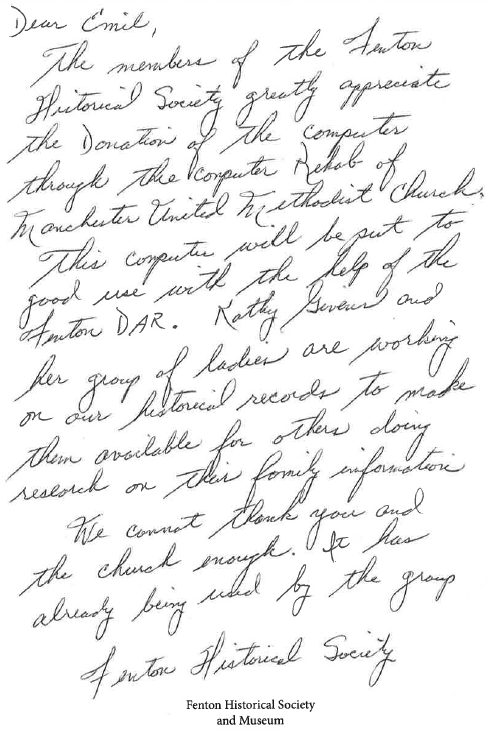 Dear Emil,
The members of the Fenton
Historical Society greatly appreciate
the Donation of the computer
through the Computer Rehab of
Manchester United Methodist Church.
This computer will be put to
good use with the help of the
Fenton DAR. Kathy and
her group of ladies are working
on our historical records to make
them available for others doing
research on their family information
We cannot thank you and
the church enough. It has
already being used by the group
Fenton Historical Society
Fenton Historical Society
and Museum